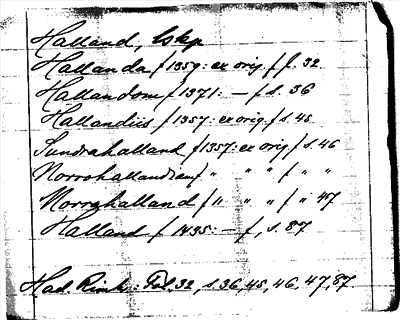 Halland, lskp
Hallanda f 1359: ex orig. f f. 32
Hallandom f 1371: — f s. 36
Hallandiis f 1357: ex orig. f s. 45
Sundrahalland f 1357: ex orig f s. 46
Norrohallandiam f " " " f " "
Norrahalland f " " " f " 47
Halland f 1435: — f, s. 87
Had. Rink.: Fol. 32, s. 36, 45, 46, 47, 87.